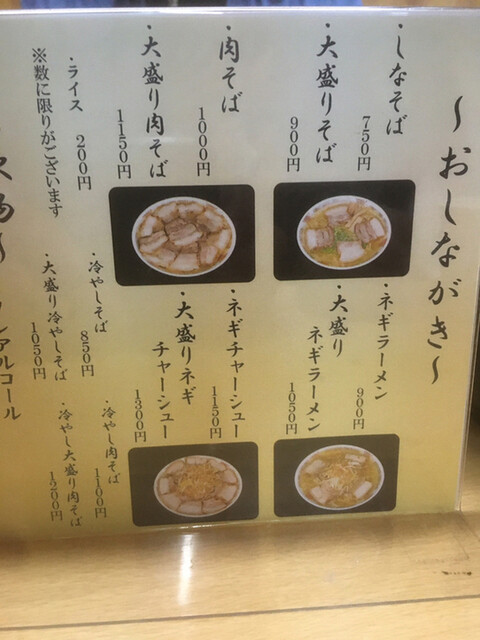 ～おしながき～
・しなそば
750円
・大盛りそば
900円
・肉そば
1000円
・大盛り肉そば
1150円
・ライス
200円
※数に限りがございます
・ネギラーメン
900円
・大盛り
ネギラーメン
1050円
・ネギチャーシュー
1150円
・大盛りネギ
チャーシュー
1300円
・冷やしそば
850円
・大盛り冷やしそば
1050円
・冷やし肉そば
1100円
・冷やし大盛り肉そば
1200円
ンアルコール